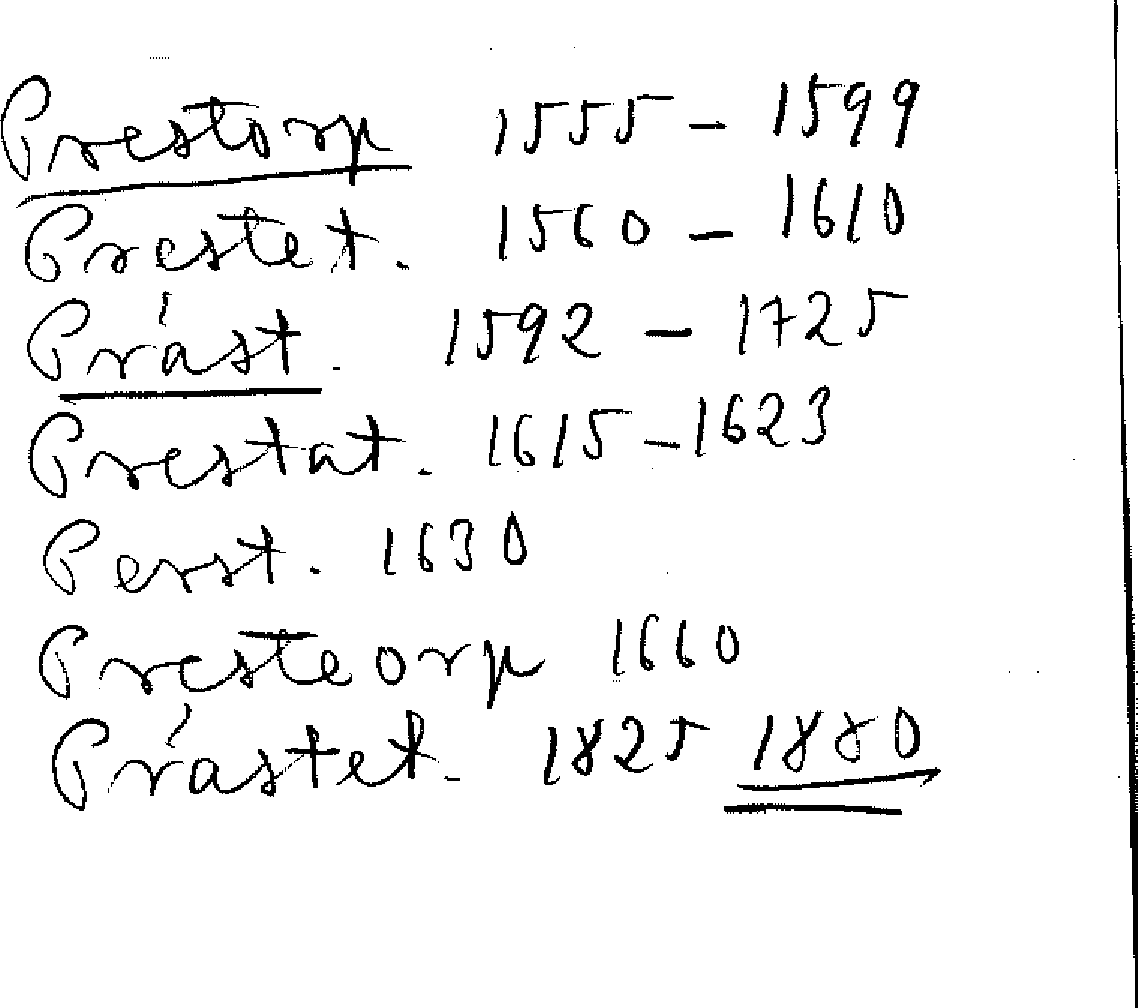 Prestorp 1555 – 1599
Prestet. 1560 – 1610
Prást. 1592 – 1725
Prestat. 1615 – 1623
Perst. 1630
Presteorp 1660
Prástet. 1825 1880